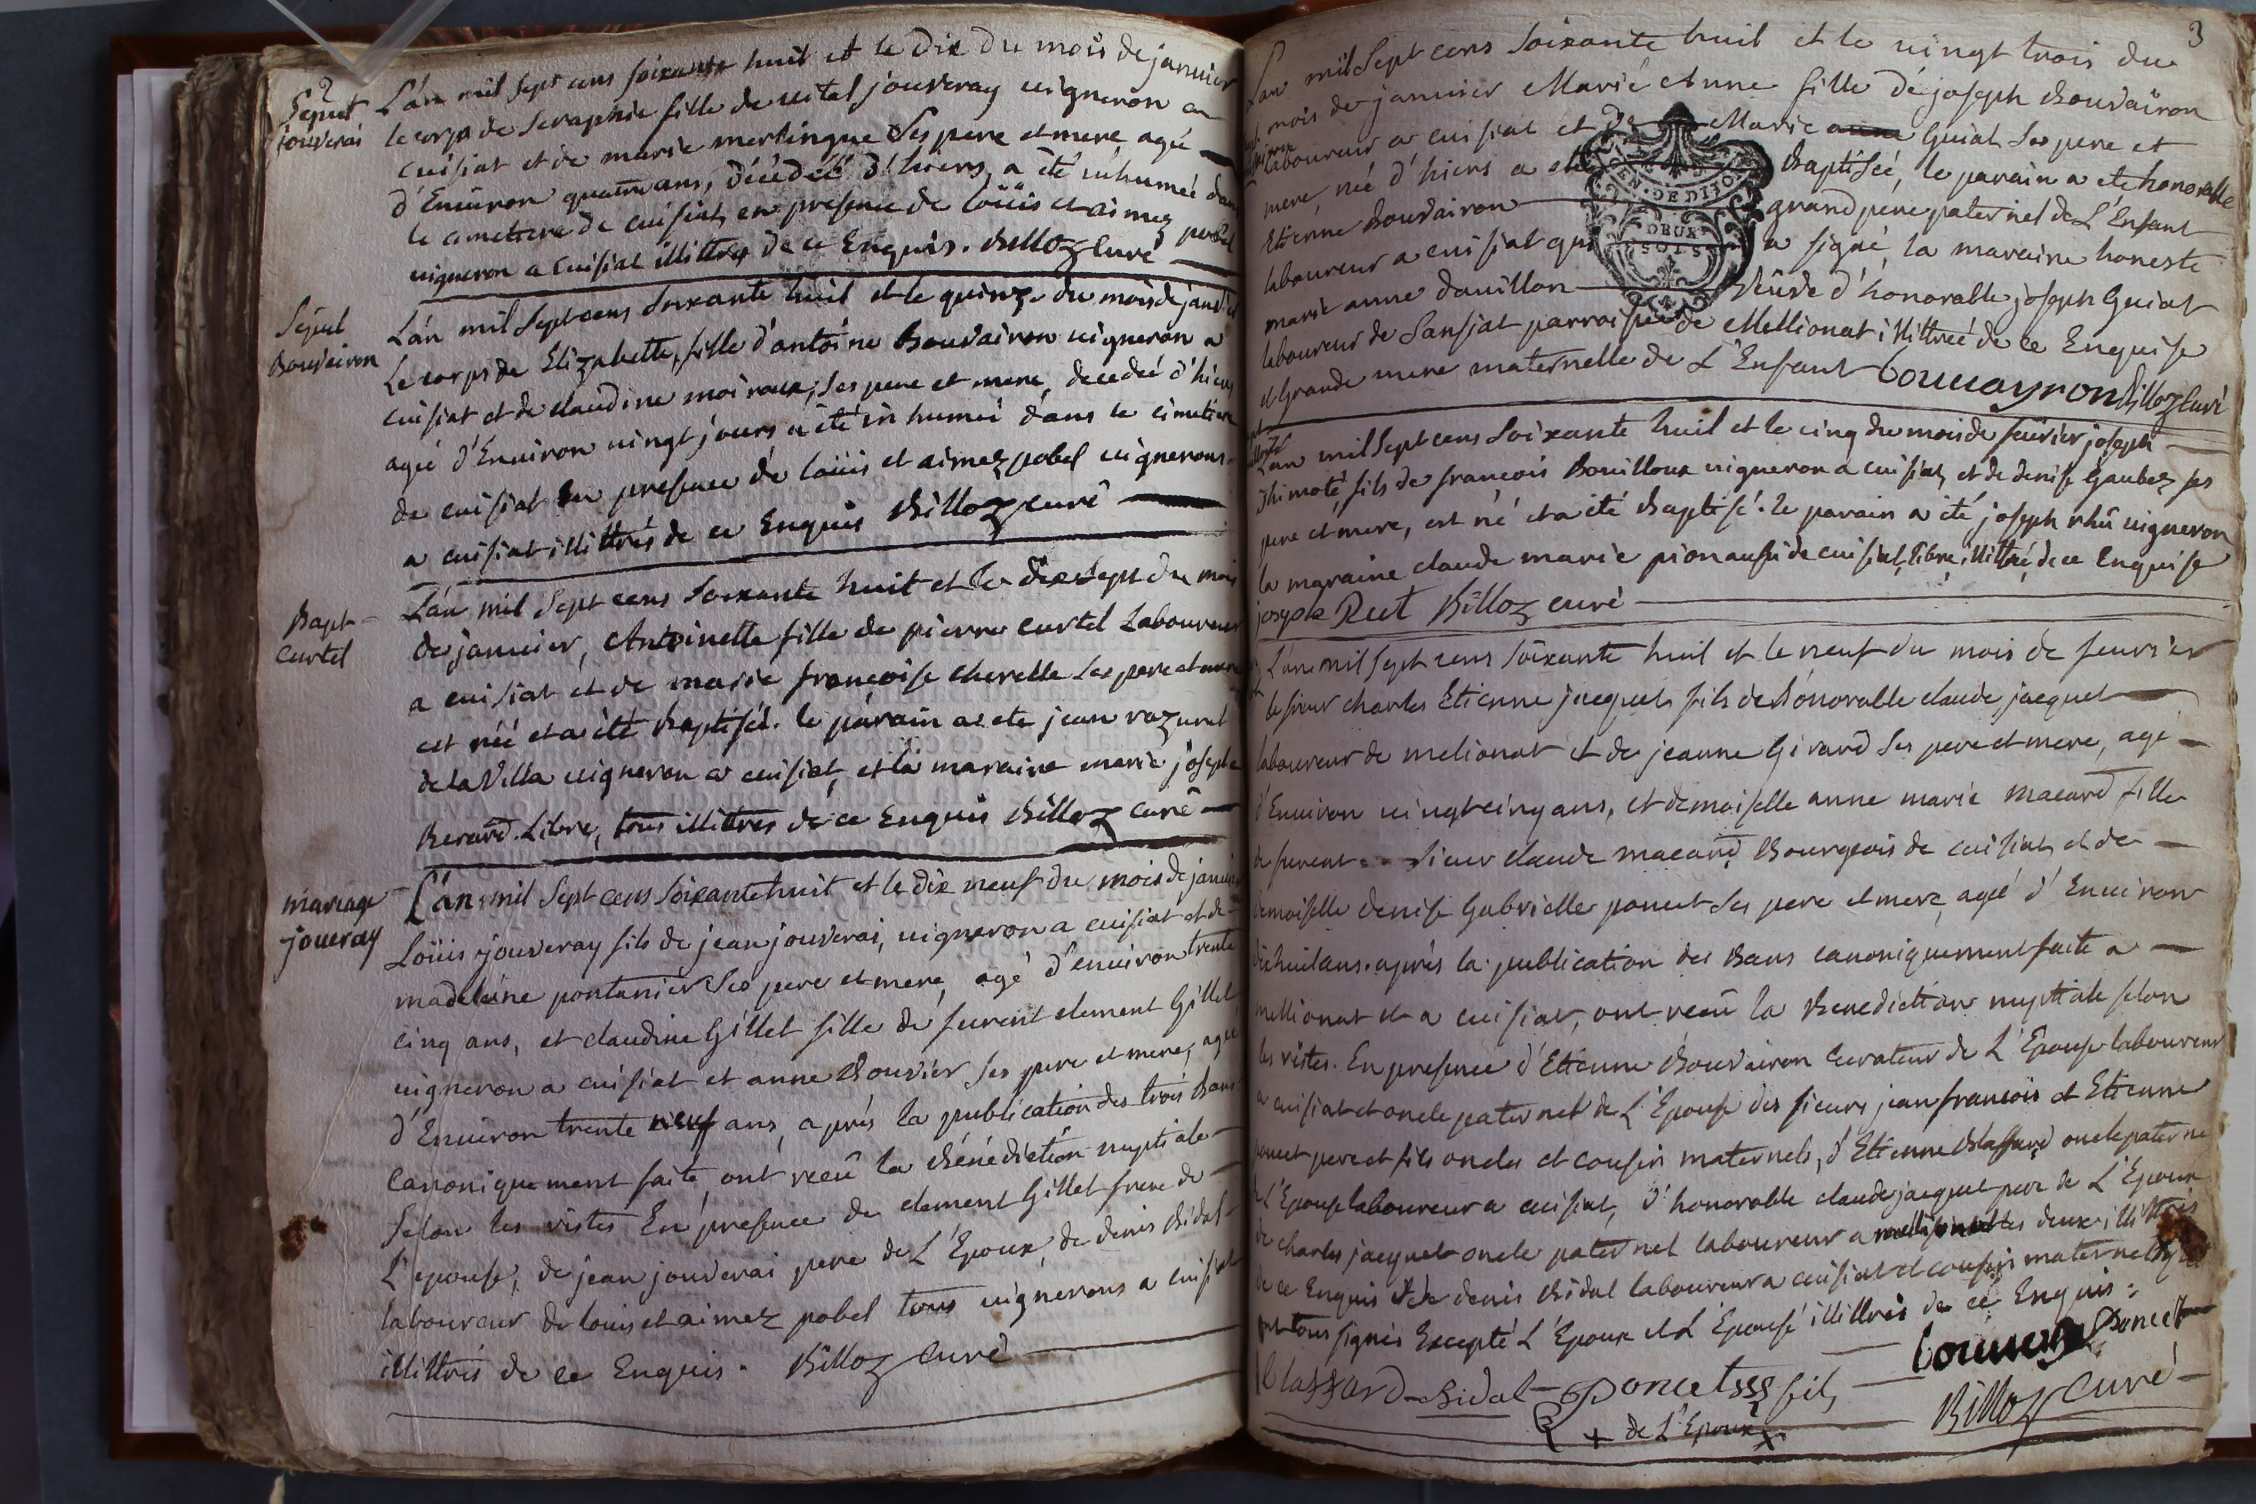 2
Sepult
jouverai
L'án mil sept cens soixante huit et le Dix Du mois de janvier
le corps de Seraphie fille de vital jouveray vigneron a
cuisiat et de marie merlingue Ses pere et mere agée
d'Environ quatre ans, décédéé d'hiers, a été inhumeé dans
le cimettiere de cuisiat, en presence de loüis et aimez pobel
vigneron a Cuisiat illittrés de ce Enquis. Billoz Curé
Sepul
Bouvairon
L'án mil Sept cens Soixante huit et le quinze du mois de janvier
Le corps de Elizabette, fille d'antoine Bouvairon vigneron a
cuisiat et de claudine moiroux, ses pere et mere, decedeé d'hiers
ageé d'Environ vingt jours a été inhumeé dans le cimetiere
de cuisiat En presence de loüis et aimez pobel vignerons
a cuisiat illittrés de ce Enquis Billoz curé
Bapt
Curtel
L'án mil Sept cens Soixante huit et le dix Sept du mois
de janvier, Antoinette fille de pierre curtel Laboureur
a cuisiat et de marie françoise cherelle Ses pere et mere
est néé et a été Baptiséé. le parain a ete jean
de la Villa vigneron a cuisiat, et la maraine marie josephe
Berard Libre, tous illittrés de ce Enquis Billoz curé
mariage
joueray
L'án mil Sept cens soixante huit et le dix neuf du mois de janvier
Loüis jouveray fils de jean jouverai, vigneron a cuisiat et de
madeleine pontanier Ses pere et mere, agé d'environ trente
cinq ans, et claudine Gillet fille de feu clement Gillet
vigneron a cuisiat et anne Bouvier ses pere et mere, ageé
d'Environ trente neuf ans, aprés la publication des trois Bans
canoniquement faite, ont recû la Bénédiction nuptiale
Selon les ristes En presence de clement Gillet frere de
L'epouse, de jean jouverai pere de L'Epoux, de denis Bidal
laboureur de louis et aimez pobel tous vignerons a cuisiat
illittrés de ce Enquis. Billoz Curé
3
L'an mil Sept cens Soixante huit et le vingt trois du
mois de janvier Marie Anne fille de joseph Bouvairon
laboureur a cuisiat et De Marie Guiat Ses pere et
mere, née d'hiers a eté Baptiséé, le parain a ete honorable
Etienne Bouvairon grand pere paternel de L'Enfant
laboureur a cuisiat qui a signé, la maraine honeste
marie anne davillon Veuve d'honorable joseph Guiat
laboureur de Sansiat parroisse de Mellionat illittreé de ce Enquise
et Grande mere maternelle de L'Enfant Bouuayron Billoz Curé
GEN·DE DIJON
DEUX
SOLS
L'an mil Sept cens Soixante huit et le cinq du mois de fevrier joseph
thimoté, fils de francois Bouilloux vigneron a cuisiat, et de denise Gaubez ses
pere et mere, est né et a été Baptisé. le parain a été joseph rhû vigneron
la maraine claude marie pion aussi de cuisiat, libre, illittré, de ce Enquise
joseph Rut Billoz curé
L'an mil sept cens Soixante huit et le neuf du mois de fevrier
le sieur charles Etienne jacquet, fils de d'onorable claude jacquet
laboureur de melionat et de jeanne Girard Ses pere et mere, agé
d'Environ vingt cinq ans, et demoiselle anne marie macard fille
de sieur claude macard Bourgeois de cuisiat, et de
demoiselle denise Gabrielle poncet Ses pere et mere, ageé d'Environ
dix huit ans. aprés la publication des Bans canoniquement faite a
mellionat et a cuisiat, ont recû la Benediction nuptiale selon
les ristes. En presence d'Etienne Bouvairon Curateur de L'Epouse laboureur
a cuisiat et oncle paternel de L'Epouse des sieurs jean francois et Etienne
poncet pere et fils oncles et cousin maternels, d'Etienne Blassard oncle paternel
de L'Epouse laboureur a cuisiat, d'honorable claude jacquet pere de L'Epoux
de charles jacquet oncle paternel laboureur a mellionat les deux illittrés
de ce Enquis et de denis Bidal laboureur a cuisiat et cousin maternel
ont tous signés Excepté L'Epoux et L'Epouse illittrés de ce Enquis.
Bouuayron Poncet
Blassard Bidal Poncet fils
Billoz Curé
+ de L'Epoux +